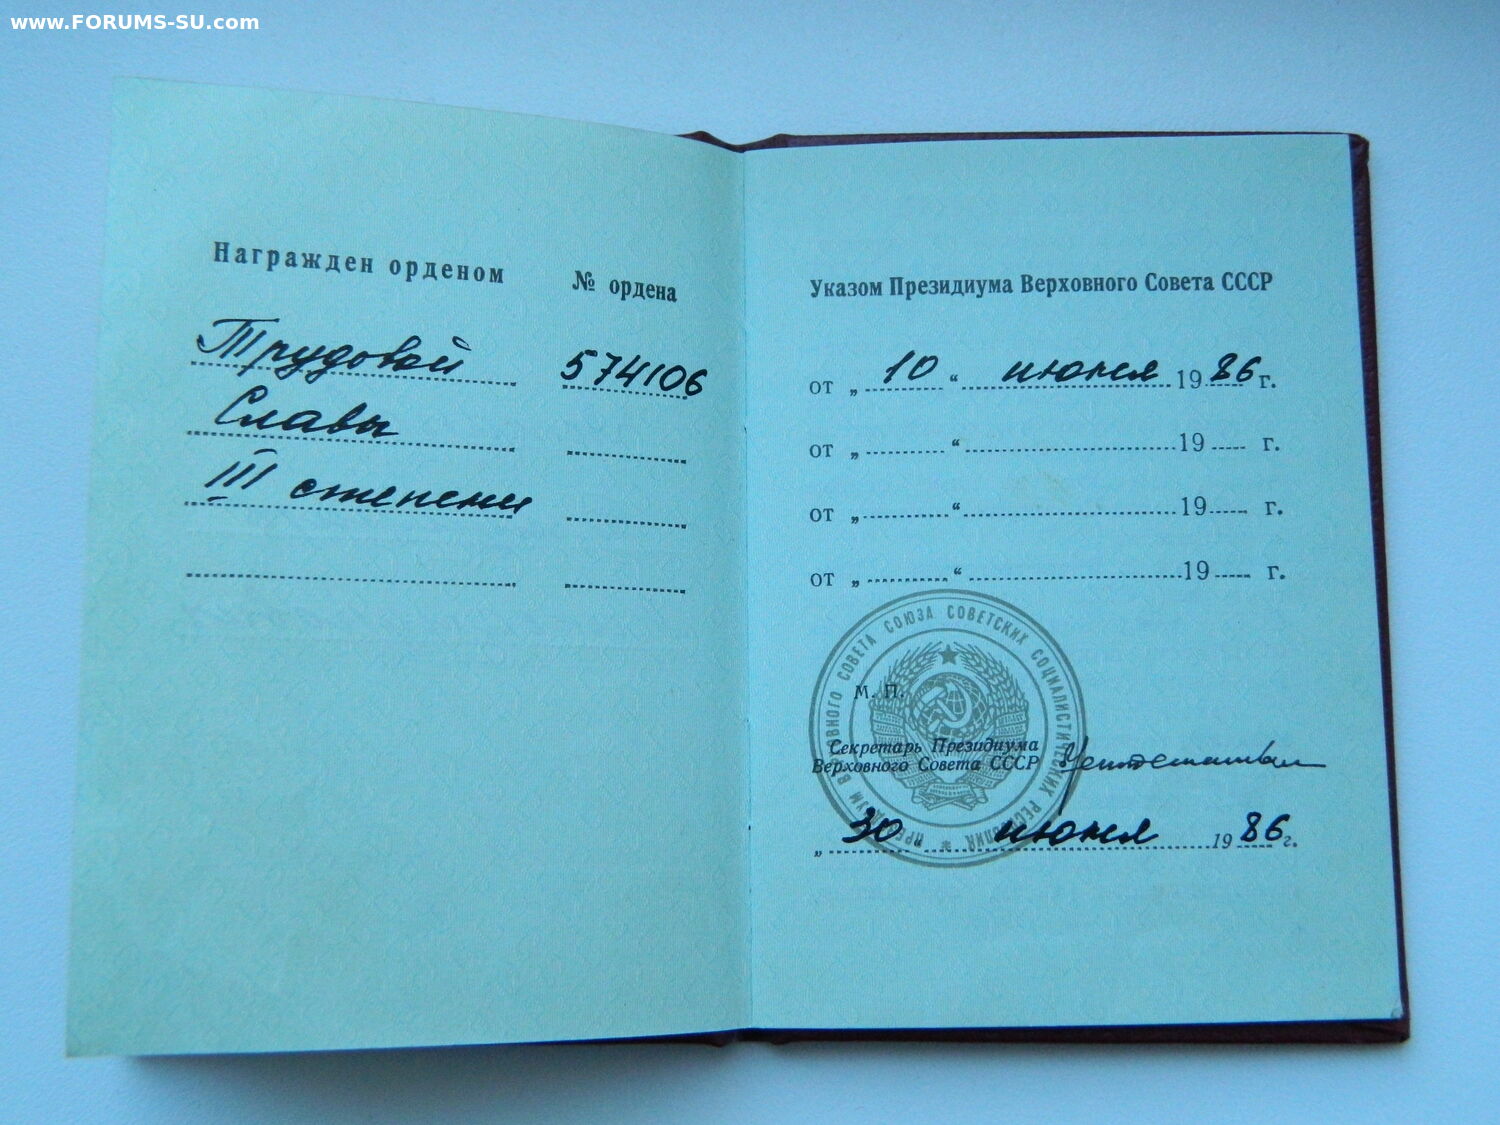 www.FORUMS-SU.com
Награжден орденом
№ ордена
Трудовой
574106
Славы
III степени
Указом Президиума Верховного Совета СССР
от „ 10 “ июня 1986 г.
от „ “ 19 г.
от „ “ 19 г.
от „ “ 19 г.
ПРЕЗИДИУМ ВЕРХОВНОГО СОВЕТА СОЮЗА СОВЕТСКИХ СОЦИАЛИСТИЧЕСКИХ РЕСПУБЛИК
М. П.
Секретарь Президиума
Верховного Совета СССР
„ 30 “ июня 1986 г.